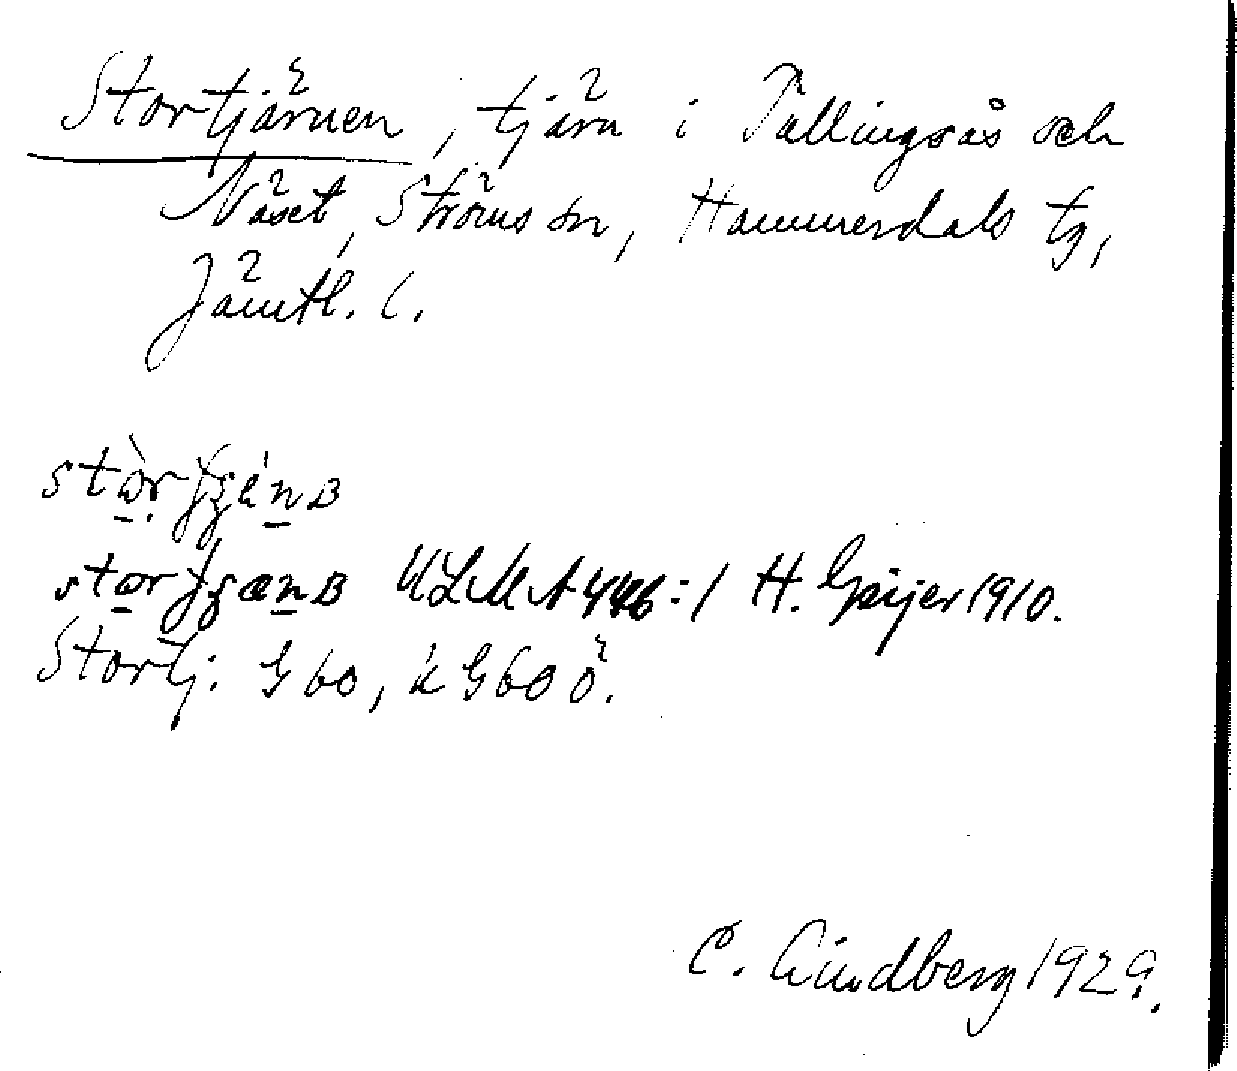 Stortjärnen, tjärn i Tullingsås och
Näset, Ströms sn, Hammerdals tg,
Jämtl. l.
ULMA 446:1 H. Geijer 1910.
Stortj. G 60, k G 60 Ö.
C. Lindberg 1929.